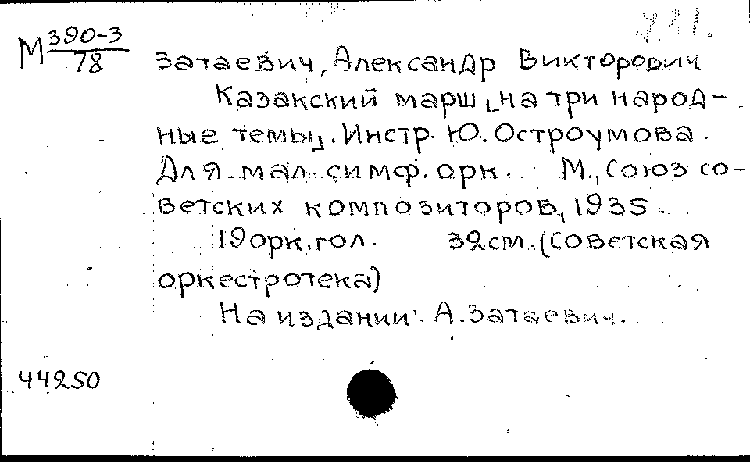 М 390-3/78
Затаевич, Александр Викторович
Казакский марш [на три народ-
ные темы]. Инстр. Ю. Остроумова.
Для мал. симф. орк. М., Союз со-
ветских композиторов, 1935.
19 орк. гол. 32 см. (Советская
оркестротека)
На издании: А. Затаевич.
44250